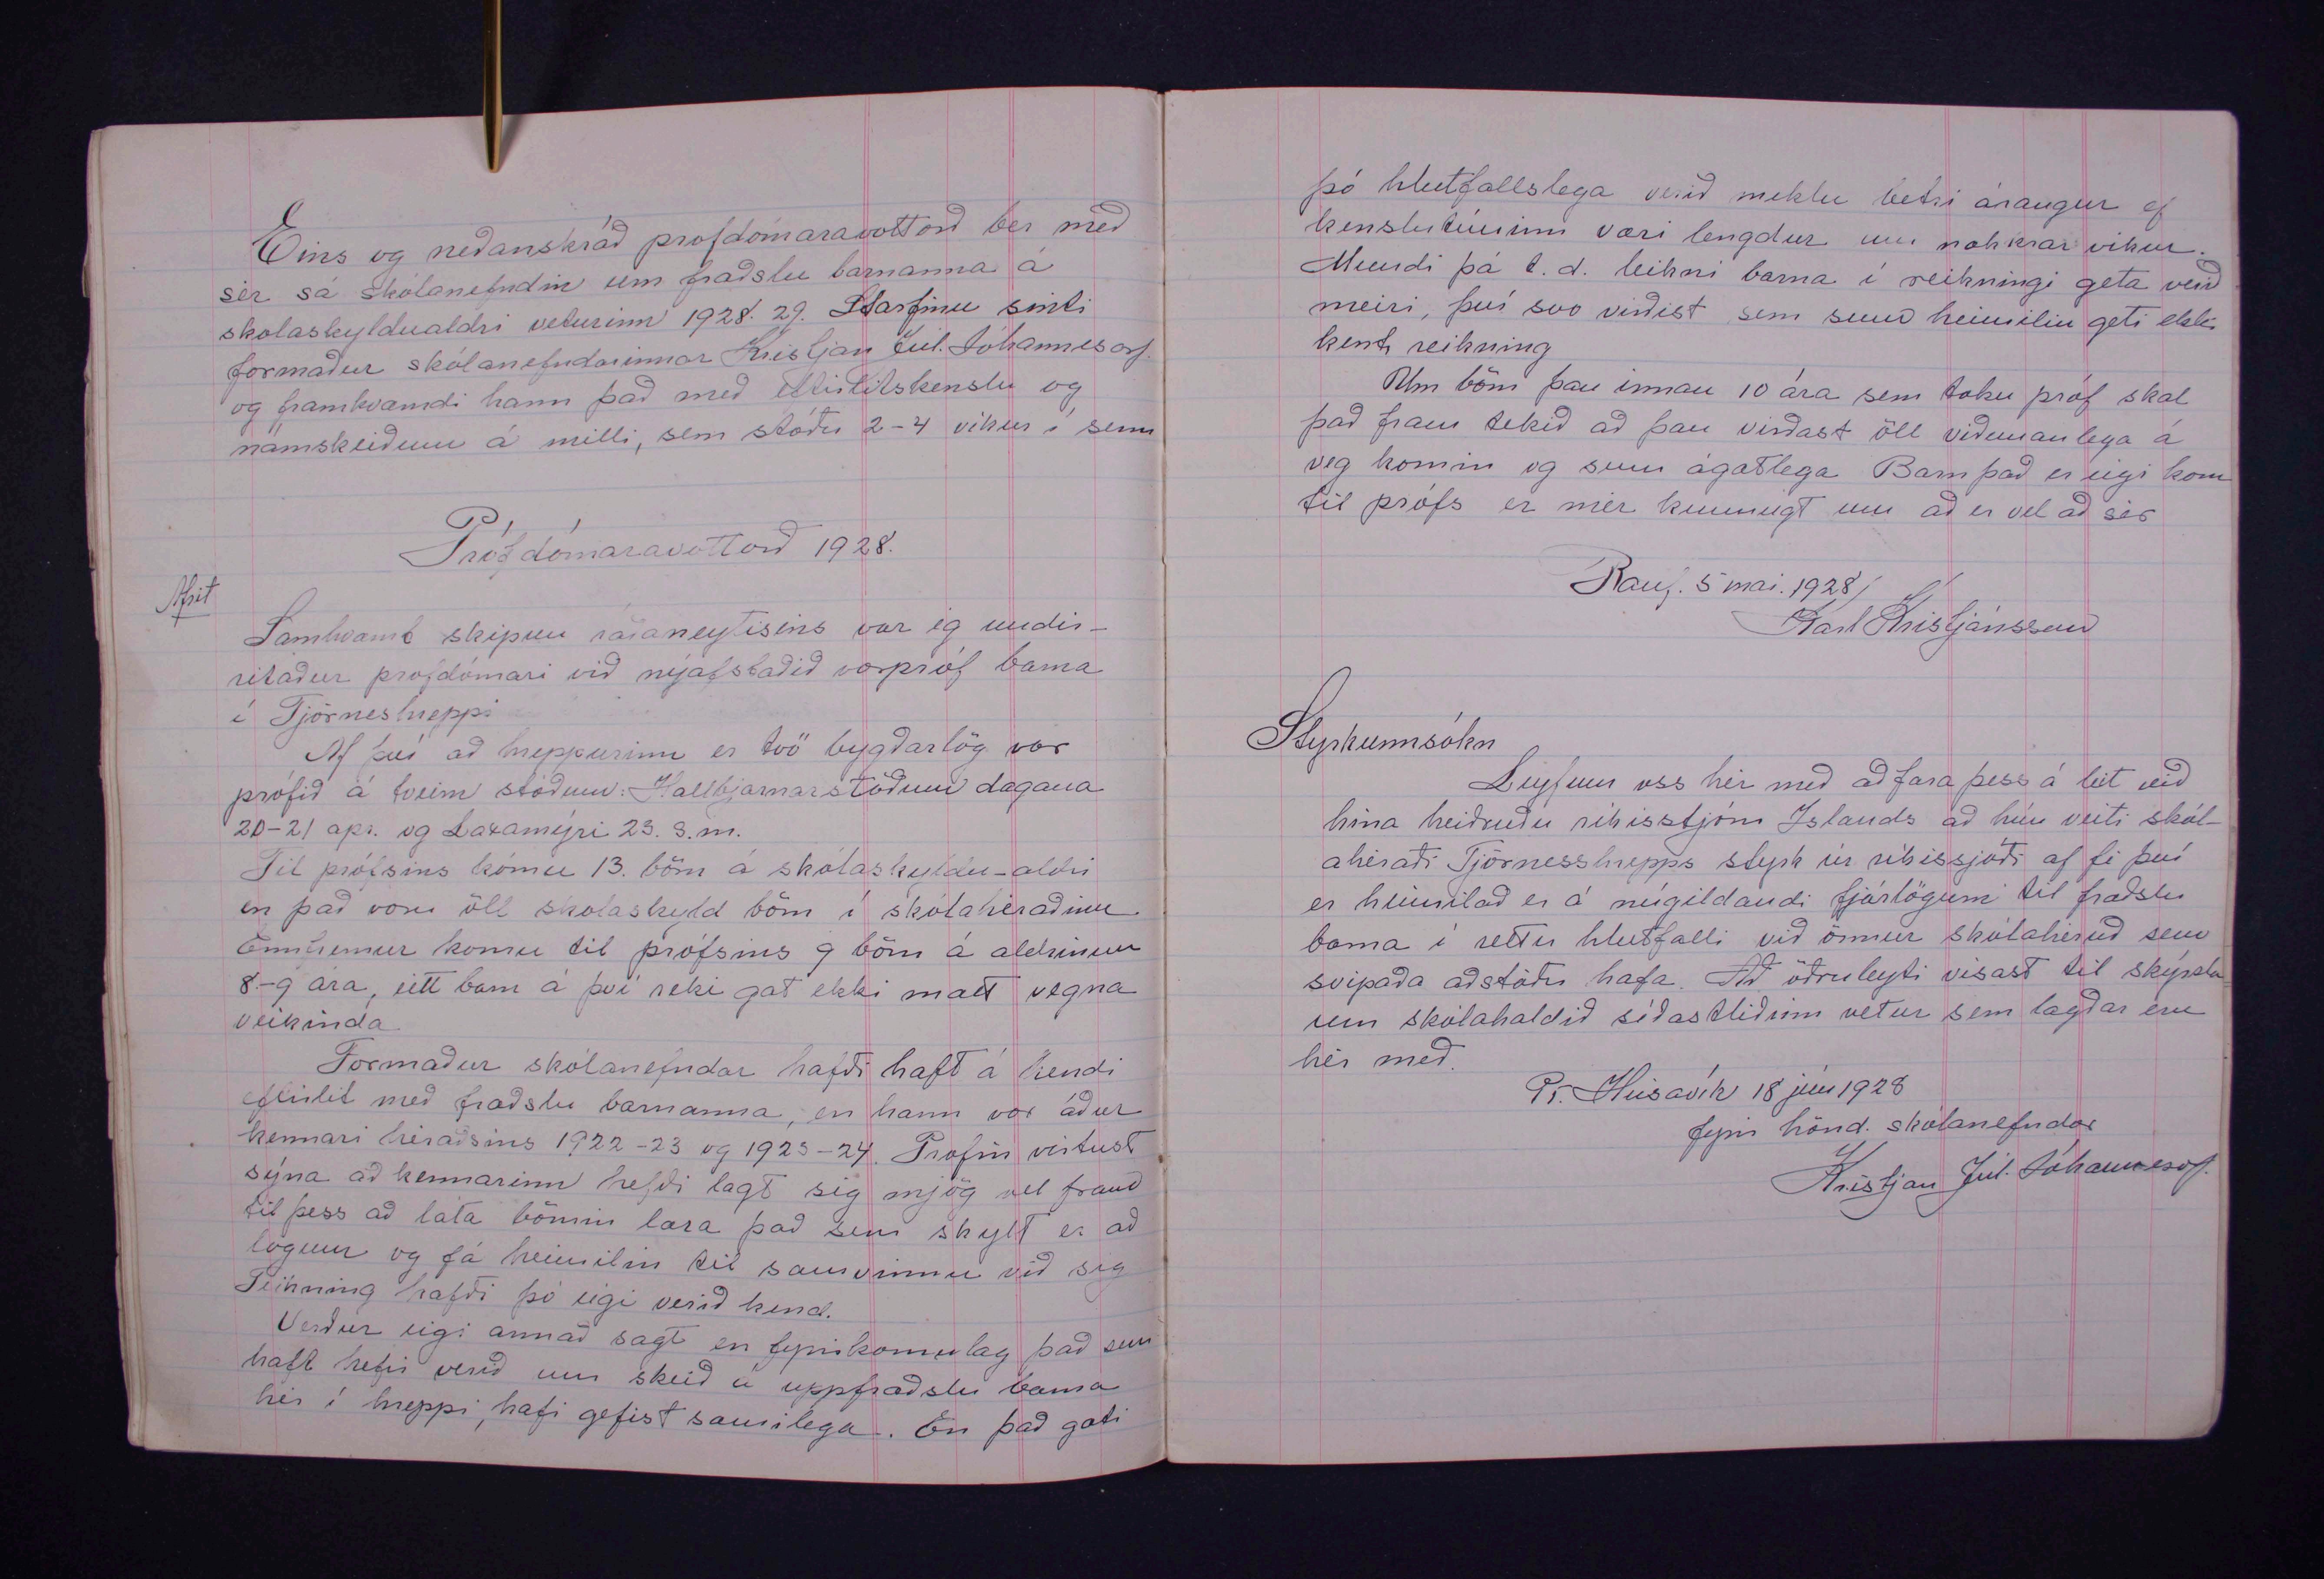 Eins og neðanskráð prófdómaravottorð ber með
sér sá skólanefndin um fræðslu barnanna á
skolaskyldualdri veturinn 1928. 29. Starfinu sinti
formaður skólanefndarinnar Kristjan Júl. Jóhannesso͡n.
og framkvæmdi hann það með eftirlitskenslu og
námskeiðum á milli, sem stóðu 2-4 vikur í senn
Prófdómaravottorð 1928.
Afrit
Samkvæmt skipun ráðaneytisins var ég undir-
ritaður profdómari við nýafstaðið vorpróf barna
í Tjörneshreppi
Af því að hreppurinn er tvö bygðarlög var
prófið á tveim stöðum: Hallbjarnarstöðum dagana
20-21 apr. og Laxamýri 23. s.m.
Til prófsins kómu 13. börn á skólaskyldu-aldri
en það voru öll skolaskyld börn í skólahéraðinu
Ennfremur komu til prófsins 9 börn á aldrinum
8-9 ára, eitt barn á því reki gat ekki mætt vegna
veikinda
Formaður skólanefndar hafði haft á hendi
eftirlit með fræðslu barnanna, en hann var áður
kennari héraðsins 1922-23 og 1923-24. Prófin virtust
sýna að kennarinn hefði lagt sig mjög vel fram
til þess að láta börnin læra það sem skylt er að
lögum og fá heimilin til samvinnu við sig
Teikning hafði þó eigi verið kend.
Verður eigi annað sagt en fyrirkomulag það sem
haft hefir verið um skeið á uppfræðslu barna
hér í hreppi, hafi gefist sæmilega. En það gæti
þó hlutfallslega verið miklu betri árangur ef
kenslutíminn væri lengdur um nokkrar vikur.
Mundi þá t.d. leikni barna í reikningi geta verið
meiri, því svo virðist sem sum heimilin geti ekki
kent reikning
Um börn þau innan 10 ára sem toku próf skal
það fram tekið að þau virðast öll viðunanlega á
veg komin og sum ágætlega Barn það er eigi kom
til prófs er mér kunnugt um að er vel að sér
Rauf. 5 mai. 1928
Karl Kristjánsson
Styrkumsókn
Leyfum oss hér með að fara þess á leit við
hina heiðruðu ríkisstjórn Islands að hún veiti skól-
ahéraði Tjörnesshrepps styrk úr ríkissjóði af fé því
er heimilað er á núgildandi fjárlögum til fræðslu
barna í réttu hlutfalli við önnur skólahéruð sem
svipaða aðstöðu hafa. Að öðruleyti vísast til skýrslu
um skólahaldið síðastliðinn vetur sem lagðar eru
hér með.
Pr. Húsavík 18 júní 1928
fyrir hönd. skólanefndar
Kristjan Júl. Jóhannesso͡n.